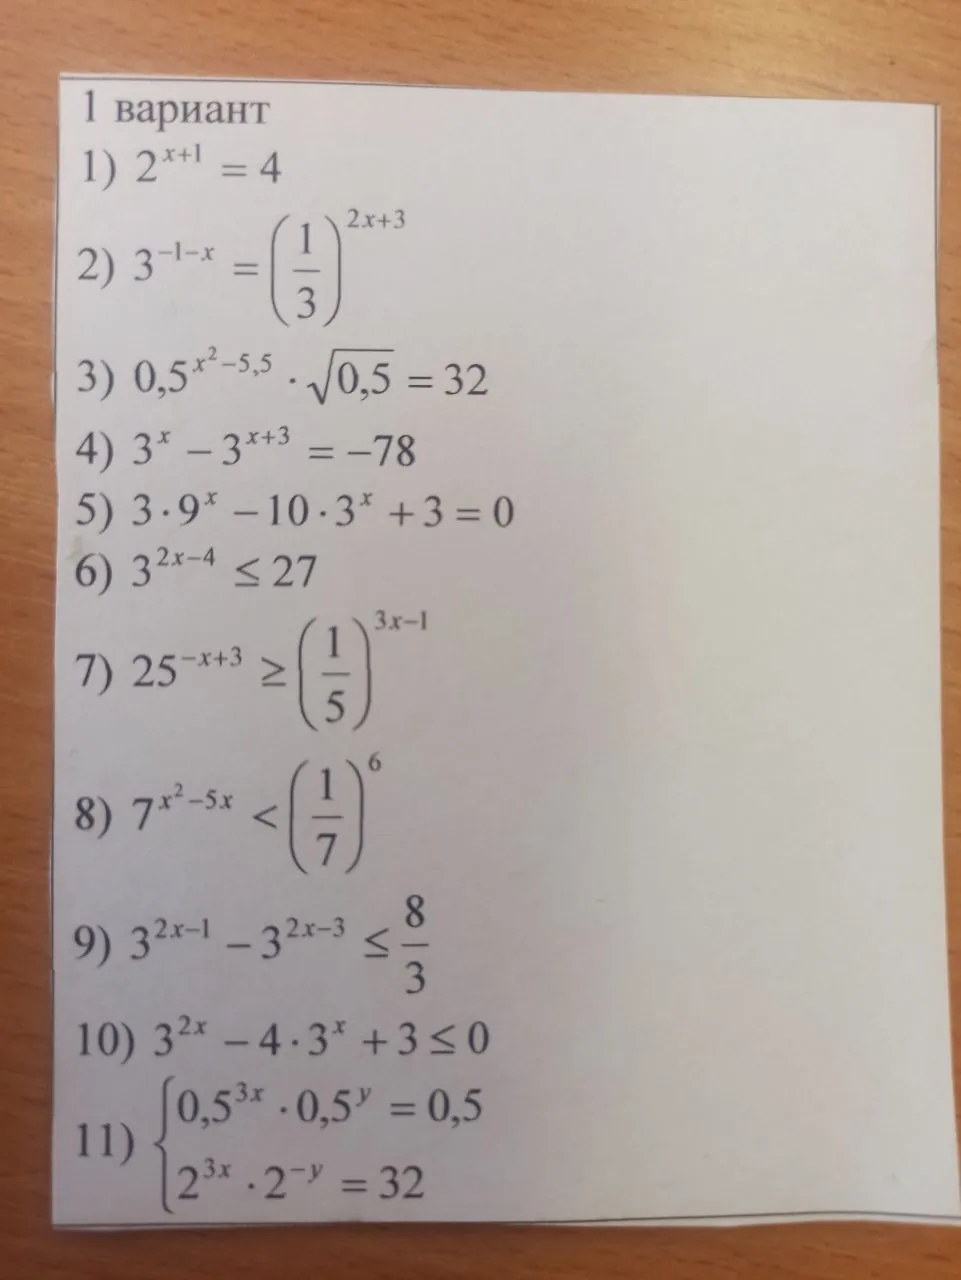 1 вариант
1) 2^{x+1} = 4
2) 3^{-1-x} = (1/3)^{2x+3}
3) 0,5^{x^2-5,5} · √0,5 = 32
4) 3^x − 3^{x+3} = −78
5) 3·9^x − 10·3^x + 3 = 0
6) 3^{2x−4} ≤ 27
7) 25^{−x+3} ≥ (1/5)^{3x−1}
8) 7^{x^2−5x} < (1/7)^6
9) 3^{2x−1} − 3^{2x−3} ≤ 8/3
10) 3^{2x} − 4·3^x + 3 ≤ 0
11) { 0,5^{3x} · 0,5^y = 0,5
2^{3x} · 2^{−y} = 32